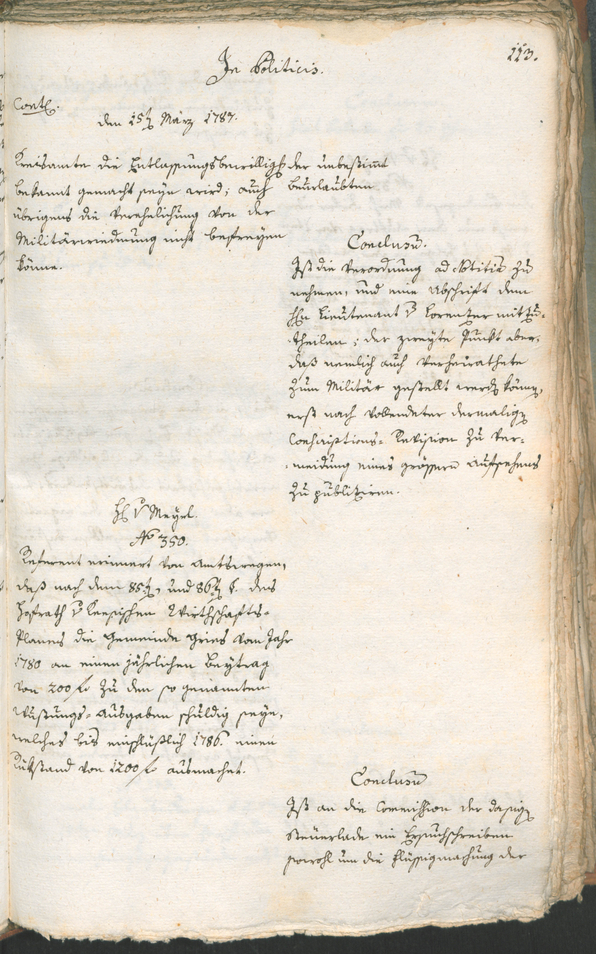 113.
In Politicis.
Contl.
den 15t März 1787.
Kreisamte die Entlassungsbewilligg
bekannt gemacht seyn wird; auch
übrigens die Verehelichung von der
Militärwiedmung nicht befreyen
könne.
der unbestimt
beurlaubten
Conclusū.
Ist die Verordnung ad Notitiā zu
nehmen, und eine Abschrift dem
Hn Lieutenant v Lorenter mitzu-
theilen; der zweyte Punkt aber,
daß nemlich auch Verheirathete
zum Militär gestellt werdẽ könẽ,
erst nach vollendeter dermaligẽ
Conscriptions-Revision zu Ver-
meidung eines grössern Aufsehens
zu publiziren.
H v Mayrl.
No 350.
Referent erinnert von Amtswegen,
daß nach dem 85t, und 86t §. des
Hofrath v Ceschischen Wirthschafts-
Planes die Gemeinde Gries vom Jahr
1780 an einen jährlichen Beytrag
von 200 f zu den so genannten
Wustungs-Ausgaben schuldig seye,
welches bis einschlüßlich 1786. einen
Rükstand von 1200 f ausmachet.
Conclusū
Ist an die Commission der dasigẽ
Steuerlade ein Ersuchschreiben
sowohl um die Flüssigmachung der